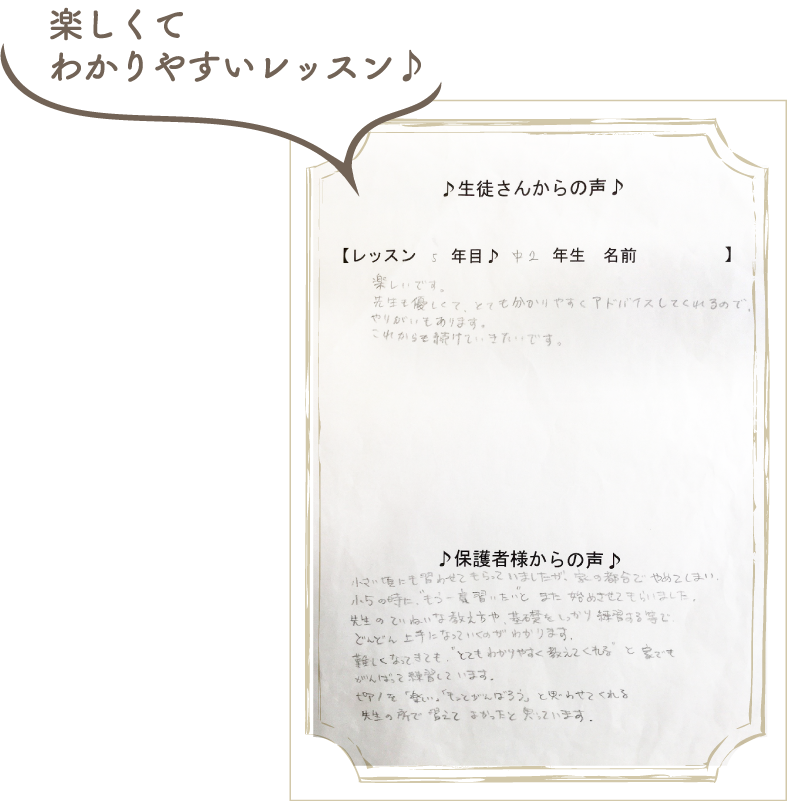 楽しくて
わかりやすいレッスン♪
♪生徒さんからの声♪
【レッスン 5 年目♪ 中2 年生 名前 】
楽しいです。
先生も優しくて、とても分かりやすくアドバイスしてくれるので、
やりがいもあります。
これからも続けていきたいです。
♪保護者様からの声♪
小さい頃にも習わせてもらっていましたが、家の都合でやめてしまい、
小5の時に、"もう一度習いたい"と また始めさせてもらいました。
先生のていねいな教え方や、基礎をしっかり練習する事で
どんどん上手になっていくのがわかります。
難しくなってきても、"とてもわかりやすく教えてくれる"と 家でも
がんばって練習しています。
ピアノを「楽しい」「もっとがんばろう」と思わせてくれる
先生の所で習えて よかったと思っています.